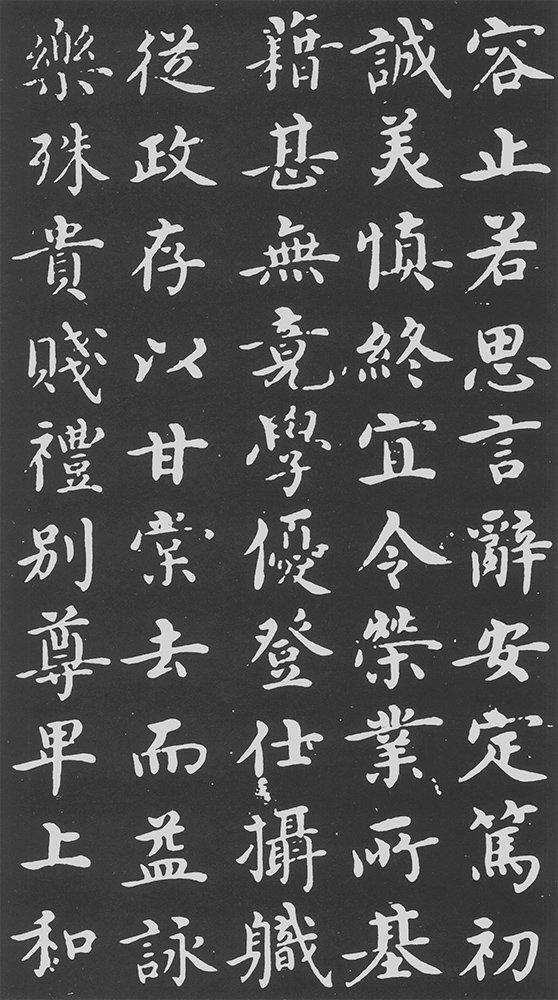 容止若思言辭安定篤初
誠美慎終宜令榮業所基
藉甚無竟學優登仕攝職
從政存以甘棠去而益詠
樂殊貴賤禮別尊卑上和